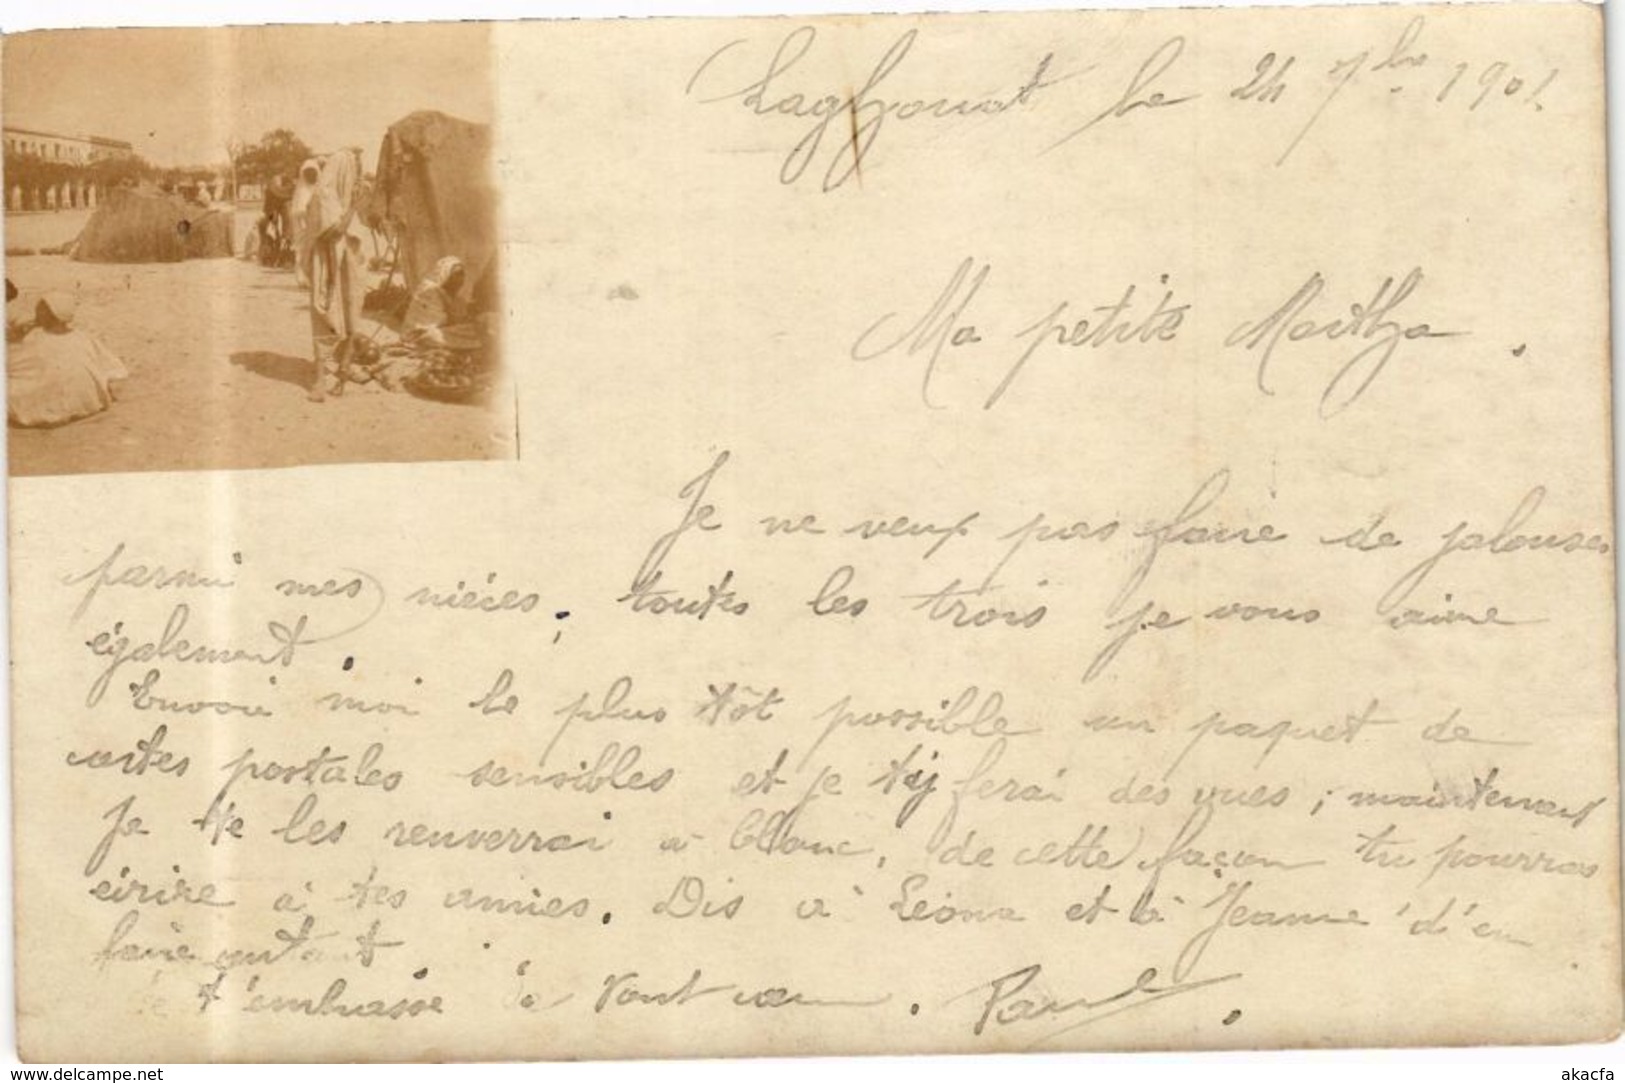 Laghouat le 24 7bre 1901.
Ma petite Martha.
Je ne veux pas faire de jalouses
parmi mes nièces, toutes les trois je vous aime
également.
Envoie moi le plus tôt possible un paquet de
cartes postales sensibles et je t'y ferai des vues ; maintenant
je te les renverrai à blanc, de cette façon tu pourras
écrire à tes amies. Dis à Léona et à Jeanne d'en
faire autant.
Je t'embrasse de tout cœur. Paul.
www.delcampe.net
akacfa